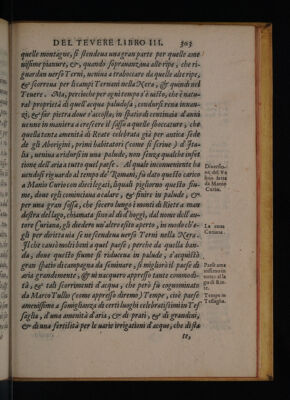 DEL TEVERE LIBRO III. 303
quelle montagne, si stendeua una gran parte per quelle ame
nissime pianure, &, quando soprauanzaua alle ripe, che ri-
guardan uerso Terni, ueniua a traboccare da quelle alte ripe,
& scorreua per li campi Ternani nella Nera, & quindi nel
Teuere. Ma, perche per ogni tempo s'è uisto, che è natu-
ral proprietà di quell'acqua paludosa, condursi rena innan-
zi, & far pietra doue s'accosta, in spatio di centinaia d'anni
uenne in maniera a crescere il sasso a quelle stoccature, che
quella tanta amenità di Reate celebrata già per antica sede
de gli Aborigini, primi habitatori (come si scriue) d'Ita-
lia, ueniua a ridursi in una palude, non senza qualche infet
tione dell'aria a tutto quel paese. Al quale inconueniente ha
uendosi riguardo al tempo de' Romani, fu dato questo carico
a Manio Curio con dieci legati, liquali pigliorno questo fiu-
me, doue egli cominciaua a calare, & finire in palude, &
per una gran fossa, che fecero lungo i monti di Riete a man
destra del lago, chiamata sino al dì d'hoggi, dal nome dell'au-
tore Curiana, gli diedero un'altro esito aperto, in modo che e-
gli per dirittissima ne uenne a scendere uerso Terni nella Nera.
Il che causò molti beni a quel paese, perche da quella ban-
da, doue questo fiume si riduceua in palude, s'acquistò
gran spatio di campagna da seminare, si migliorò il paese di
aria grandemente, & ui nacquero appresso tante commodi-
tà, & tali scorrimenti d'acqua, che però fu cognominato
da Marco Tullio (come appresso diremo) Tempe, cioè paese
amenissimo a somiglianza di certi luoghi celebratissimi in Tes
saglia, d'una amenità d'aria, & di prati, & di grandini,
& di una fertilità per le uarie irrigationi d'acque, che di sta
te,
Diuersio-
ne del Ve
lino fatta
da Manio
Curio.
La fossa
Curiana.
Paese ame
nissimo in
torno al la
go di Rie-
te.
Tempe in
Tessaglia.